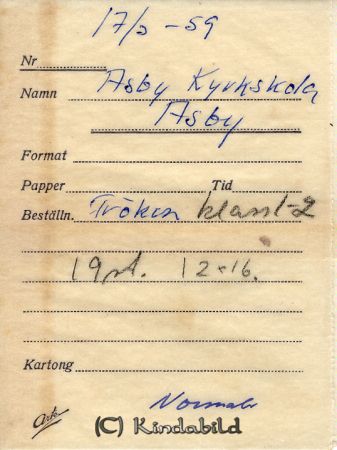 17/3 - 59
Nr
Namn Asby Kyrkskola
Asby
Format
Papper Tid
Beställn. Fröken klass 1-2
19 st. 12×16.
Kartong
Ark Normalr
(C) Kindabild